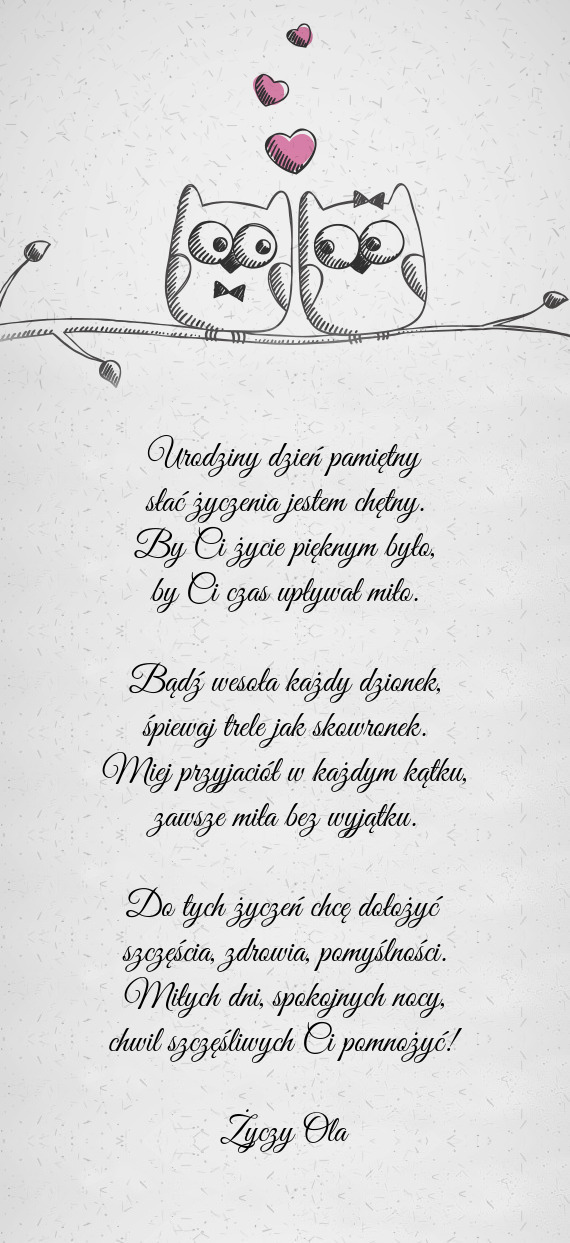 Urodziny dzień pamiętny
słać życzenia jestem chętny.
By Ci życie pięknym było,
by Ci czas upływał miło.
Bądź wesoła każdy dzionek,
śpiewaj trele jak skowronek.
Miej przyjaciół w każdym kątku,
zawsze miła bez wyjątku.
Do tych życzeń chcę dołożyć
szczęścia, zdrowia, pomyślności.
Miłych dni, spokojnych nocy,
chwil szczęśliwych Ci pomnożyć!
Życzy Ola